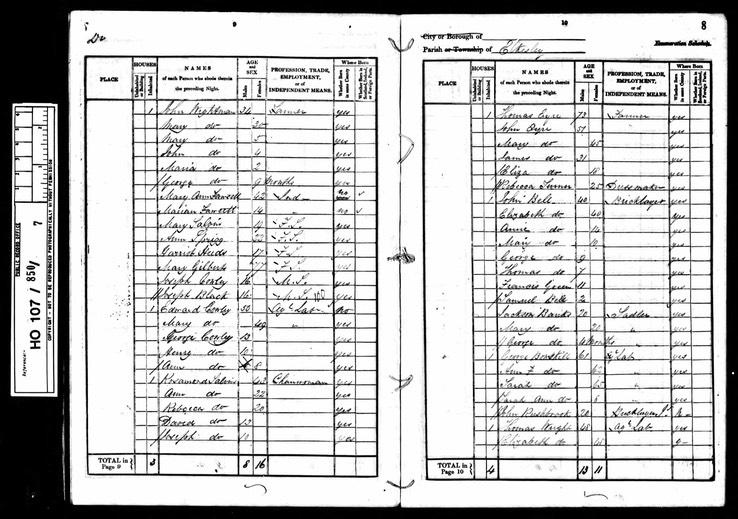 9
Do
PLACE
HOUSES
Uninhabited or Building
Inhabited
NAMES
of each Person who abode therein the preceding Night.
AGE and SEX
Males
Females
PROFESSION, TRADE, EMPLOYMENT, or of INDEPENDENT MEANS.
Where Born
Whether Born in same County
Whether Born in Scotland, Ireland, or Foreign Parts.
1 John Wightman 34 Farmer yes
Mary do 30 yes
Mary do 5 yes
John do 4 yes
Maria do 2 yes
George do 9 Months yes
Mary Ann Fawcett 42 Ind no
Marian Fawcett 14 no
Mary Salvin 19 F.S. yes
Ann Sprigg 22 F.S. yes
17 F.S. yes
Mary Gilbert F.S. yes
Joseph Cowly 16 M.S. yes
Joseph Black 14 M.S. yes
1 Edward Cowly 52 Ag Lab no
Mary do 49 yes
George Cowly 13 yes
Henry do 10 yes
Ann do 8 yes
1 Salvin 42 yes
Ann do 22 yes
Rebecca do 20 yes
David do 13 yes
Joseph do 10 yes
TOTAL in Page 9 3 8 16
10
8
City or Borough of
Parish or Township of Elkesley
Enumeration Schedule.
PLACE
HOUSES
Uninhabited or Building
Inhabited
NAMES
of each Person who abode therein the preceding Night.
AGE and SEX
Males
Females
PROFESSION, TRADE, EMPLOYMENT, or of INDEPENDENT MEANS.
Where Born
Whether Born in same County
Whether Born in Scotland, Ireland, or Foreign Parts.
1 Thomas Eyre 73 Farmer yes
John Eyre 37 yes
Mary do 45 yes
James do 31 yes
Eliza do 18 yes
Rebecca Turner 25 Dressmaker yes
1 John Bell 40 Bricklayer yes
Elizabeth do 40 yes
Anne do 14 yes
Mary do 12 yes
George do 9 yes
Thomas do 7 yes
Francis Green 11 yes
Samuel Bell 2 yes
Jackson Banks 20 Sadler yes
Mary do 20 yes
George do 4 Months yes
1 George 61 Ag Lab yes
Ann do 62 yes
Sarah do yes
Sarah Ann do yes
John Rushbrook 20 Bricklayer N
1 Thomas Wright 45 Ag Lab yes
Elizabeth do
TOTAL in Page 10 4 13 11
Reference:-
PUBLIC RECORD OFFICE
HO 107 / 850 / 7
COPYRIGHT - NOT TO BE REPRODUCED PHOTOGRAPHICALLY WITHOUT PERMISSION